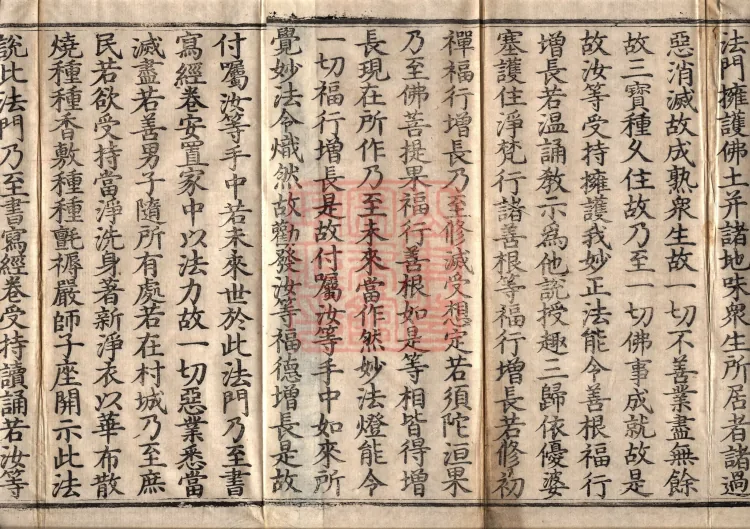 法門擁護佛土并諸地味衆生所居者諸過
惡消滅故成熟衆生故一切不善業盡無餘
故三寶種久住故乃至一切佛事成就故是
故汝等受持擁護我妙正法能令善根福行
增長若温誦教示爲他說授趣三歸依優婆
塞護住淨梵行諸善根等福行增長若修初
禪福行增長乃至修滅受想定若須陀洹果
乃至佛菩提果福行善根如是等相皆得增
長現在所作乃至未來當作然妙法燈能令
一切福行增長是故付囑汝等手中如來所
覺妙法令熾然故勸發汝等福德增長是故
付囑汝等手中若未來世於此法門乃至書
寫經卷安置家中以法力故一切惡業悉當
滅盡若善男子隨所有處若在村城乃至庶
民若欲受持當淨洗身著新淨衣以華布散
燒種種香敷種種氈褥嚴師子座開示此法
說此法門乃至書寫經卷受持讀誦若汝等